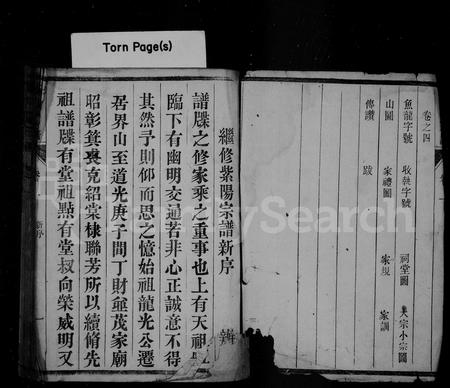 Torn Page(s)
卷之四
魚龍字號 收執字號 祠堂圖 大宗小宗圖
山圖 家禮圖 家規 家訓
傳讚 跋
繼修紫陽宗譜新序
譜牒之修家乘之重事也上有天祖
臨下有幽明交通若非心正誠意不得
其然予則仰而思之憶始祖龍光公遷
居界山至道光庚子間丁財並茂家廟
昭彰箕裘克紹棠棣聯芳所以續脩先
祖譜牒有堂祖點有堂叔向榮威明又
新序